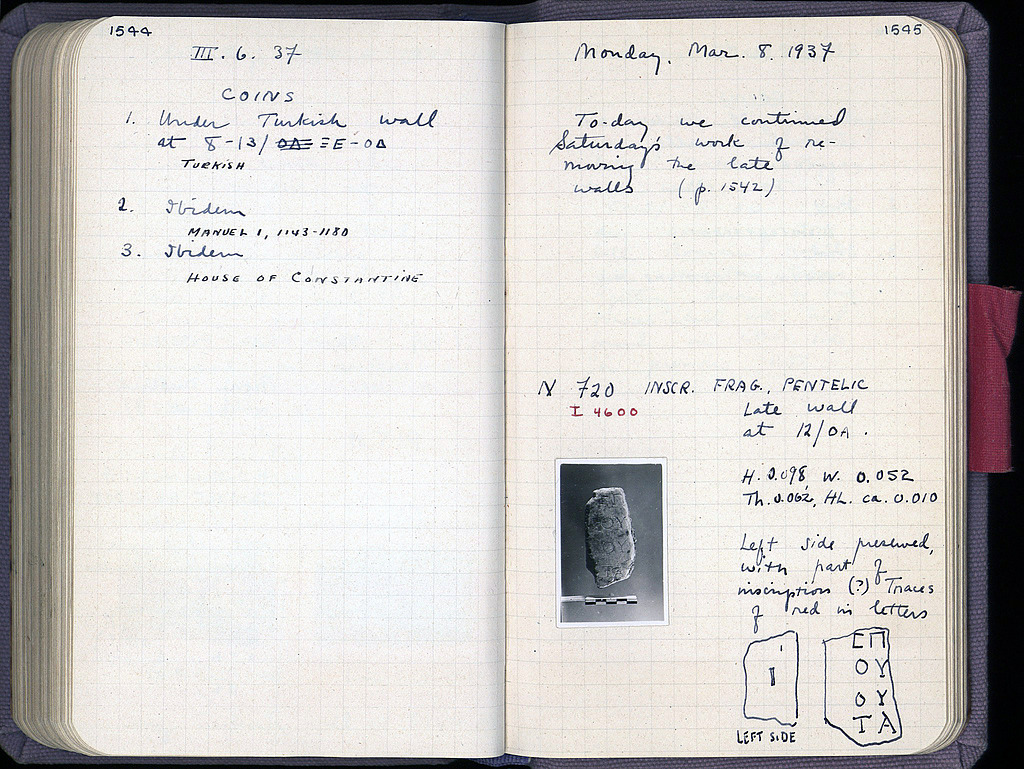 1544
III. 6. 37
COINS
1. Under Turkish wall
at 8-13/ΞE-OΔ
TURKISH
2. Ibidem
MANUEL I, 1143-1180
3. Ibidem
HOUSE OF CONSTANTINE
1545
Monday, Mar. 8. 1937
To-day we continued
Saturday's work of re-
moving the late
walls (p. 1542)
N 720 INSCR. FRAG., PENTELIC
I 4600
Late wall
at 12/OA.
H. 0.098, W. 0.052
Th. 0.062, HL. ca. 0.010
Left side preserved,
with part of
inscription (?) Traces
of red in letters
I
LEFT SIDE
ΣΠ
OY
OY
TA